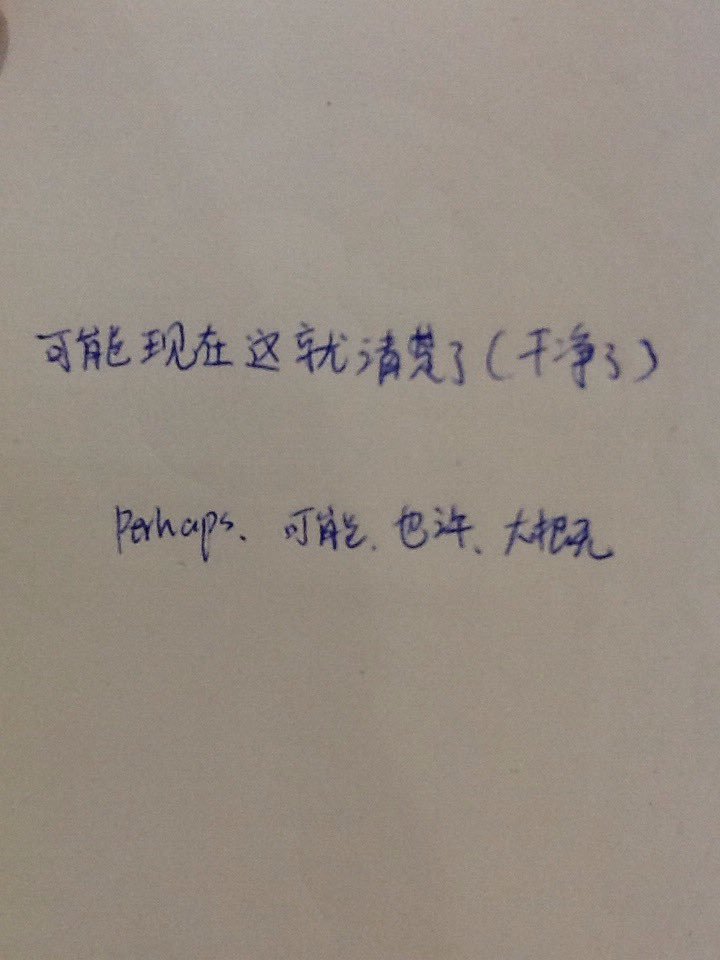 可能现在这就清楚了(干净了)
Perhaps、可能、也许、大概